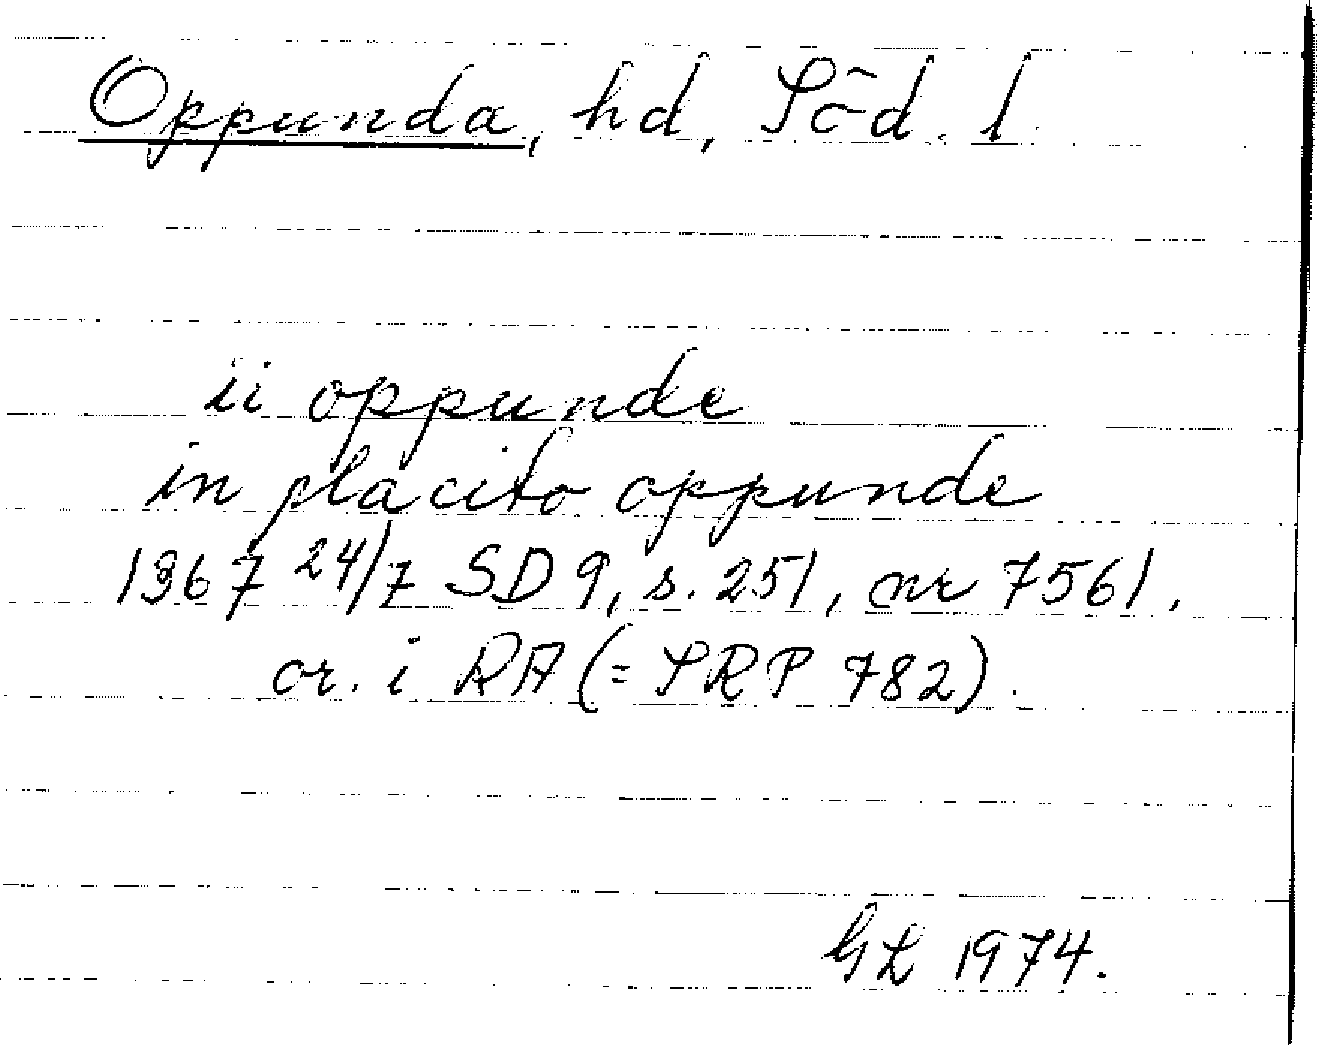 Oppunda, hd, Söd. l.
ii oppunde
in placito oppunde
1367 24/7 SD 9, s. 251, nr 7561,
or. i RA (= SRP 782).
GL 1974.